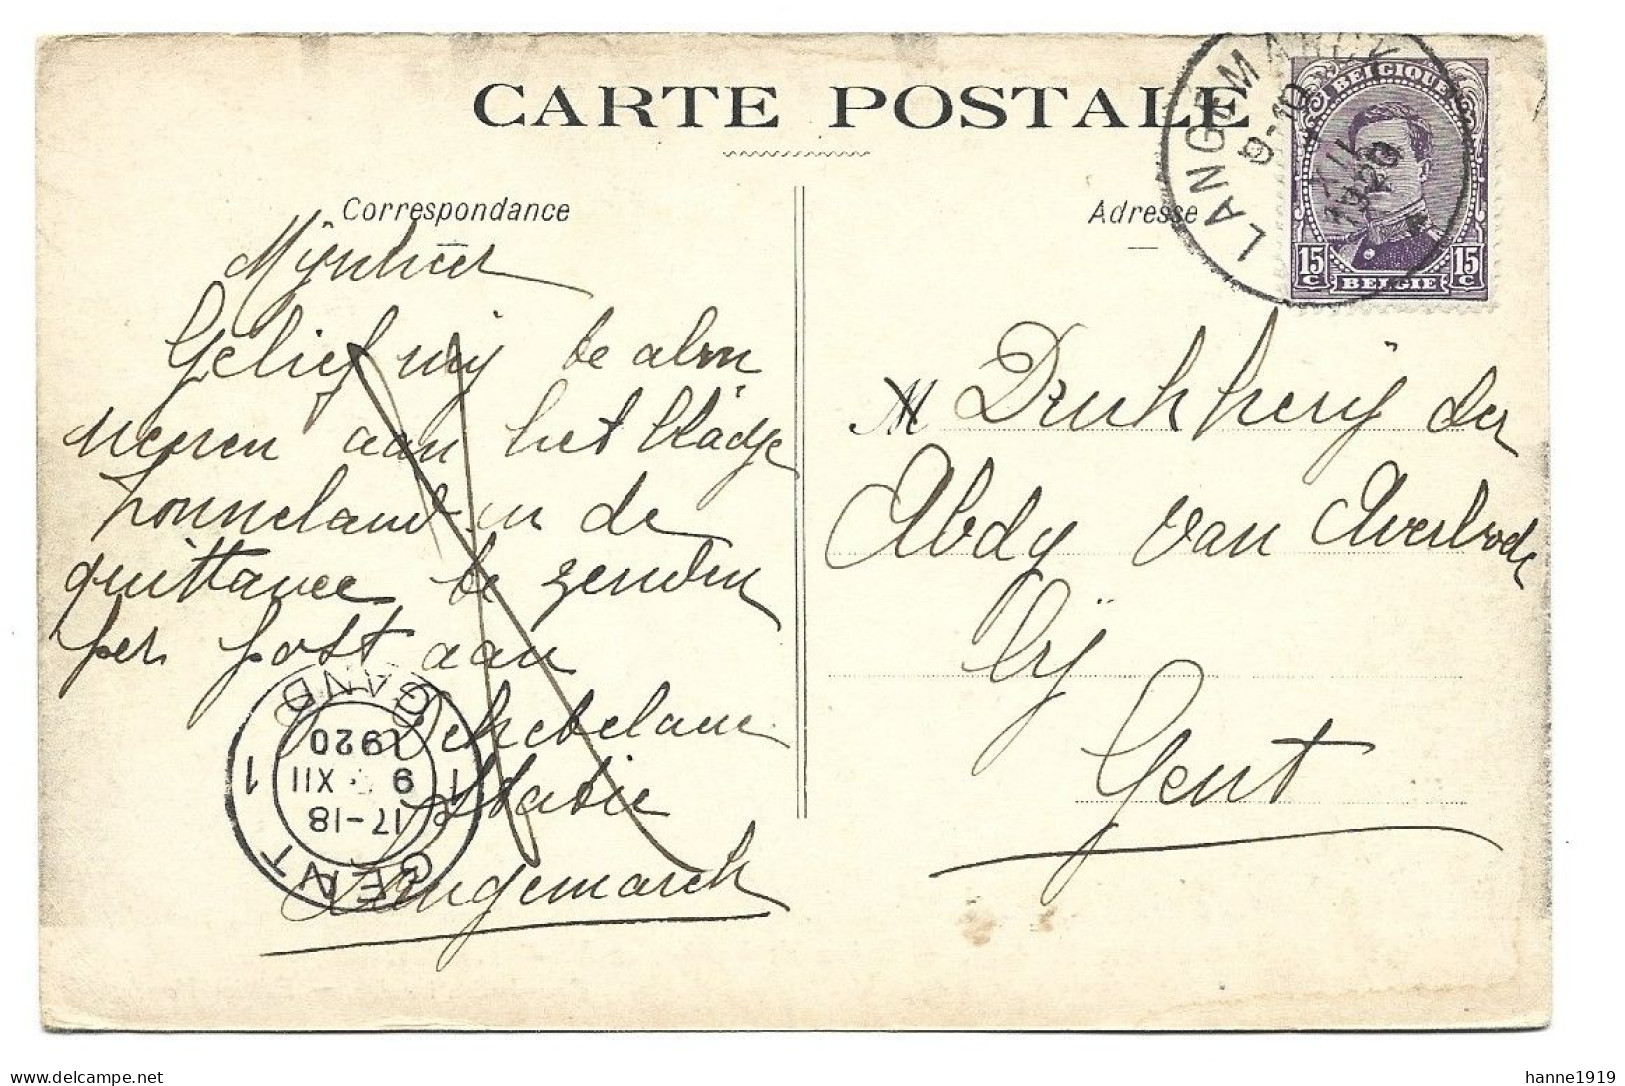 CARTE POSTALE
Correspondance
Adresse
LANGEMARCK
9-10
XII
1920
BELGIQUE
15 C 15 C
BELGIE
Mijnheer
Gelief mij te abon
neeren aan het bladje
Zonneland en de
quittance te zenden
per post aan
Statie
Langemarck
GENT 1 GAND 1
17-18
9 XII
1920
M Drukkerij der
Abdy van Averbode
bij
Gent
hanne1919